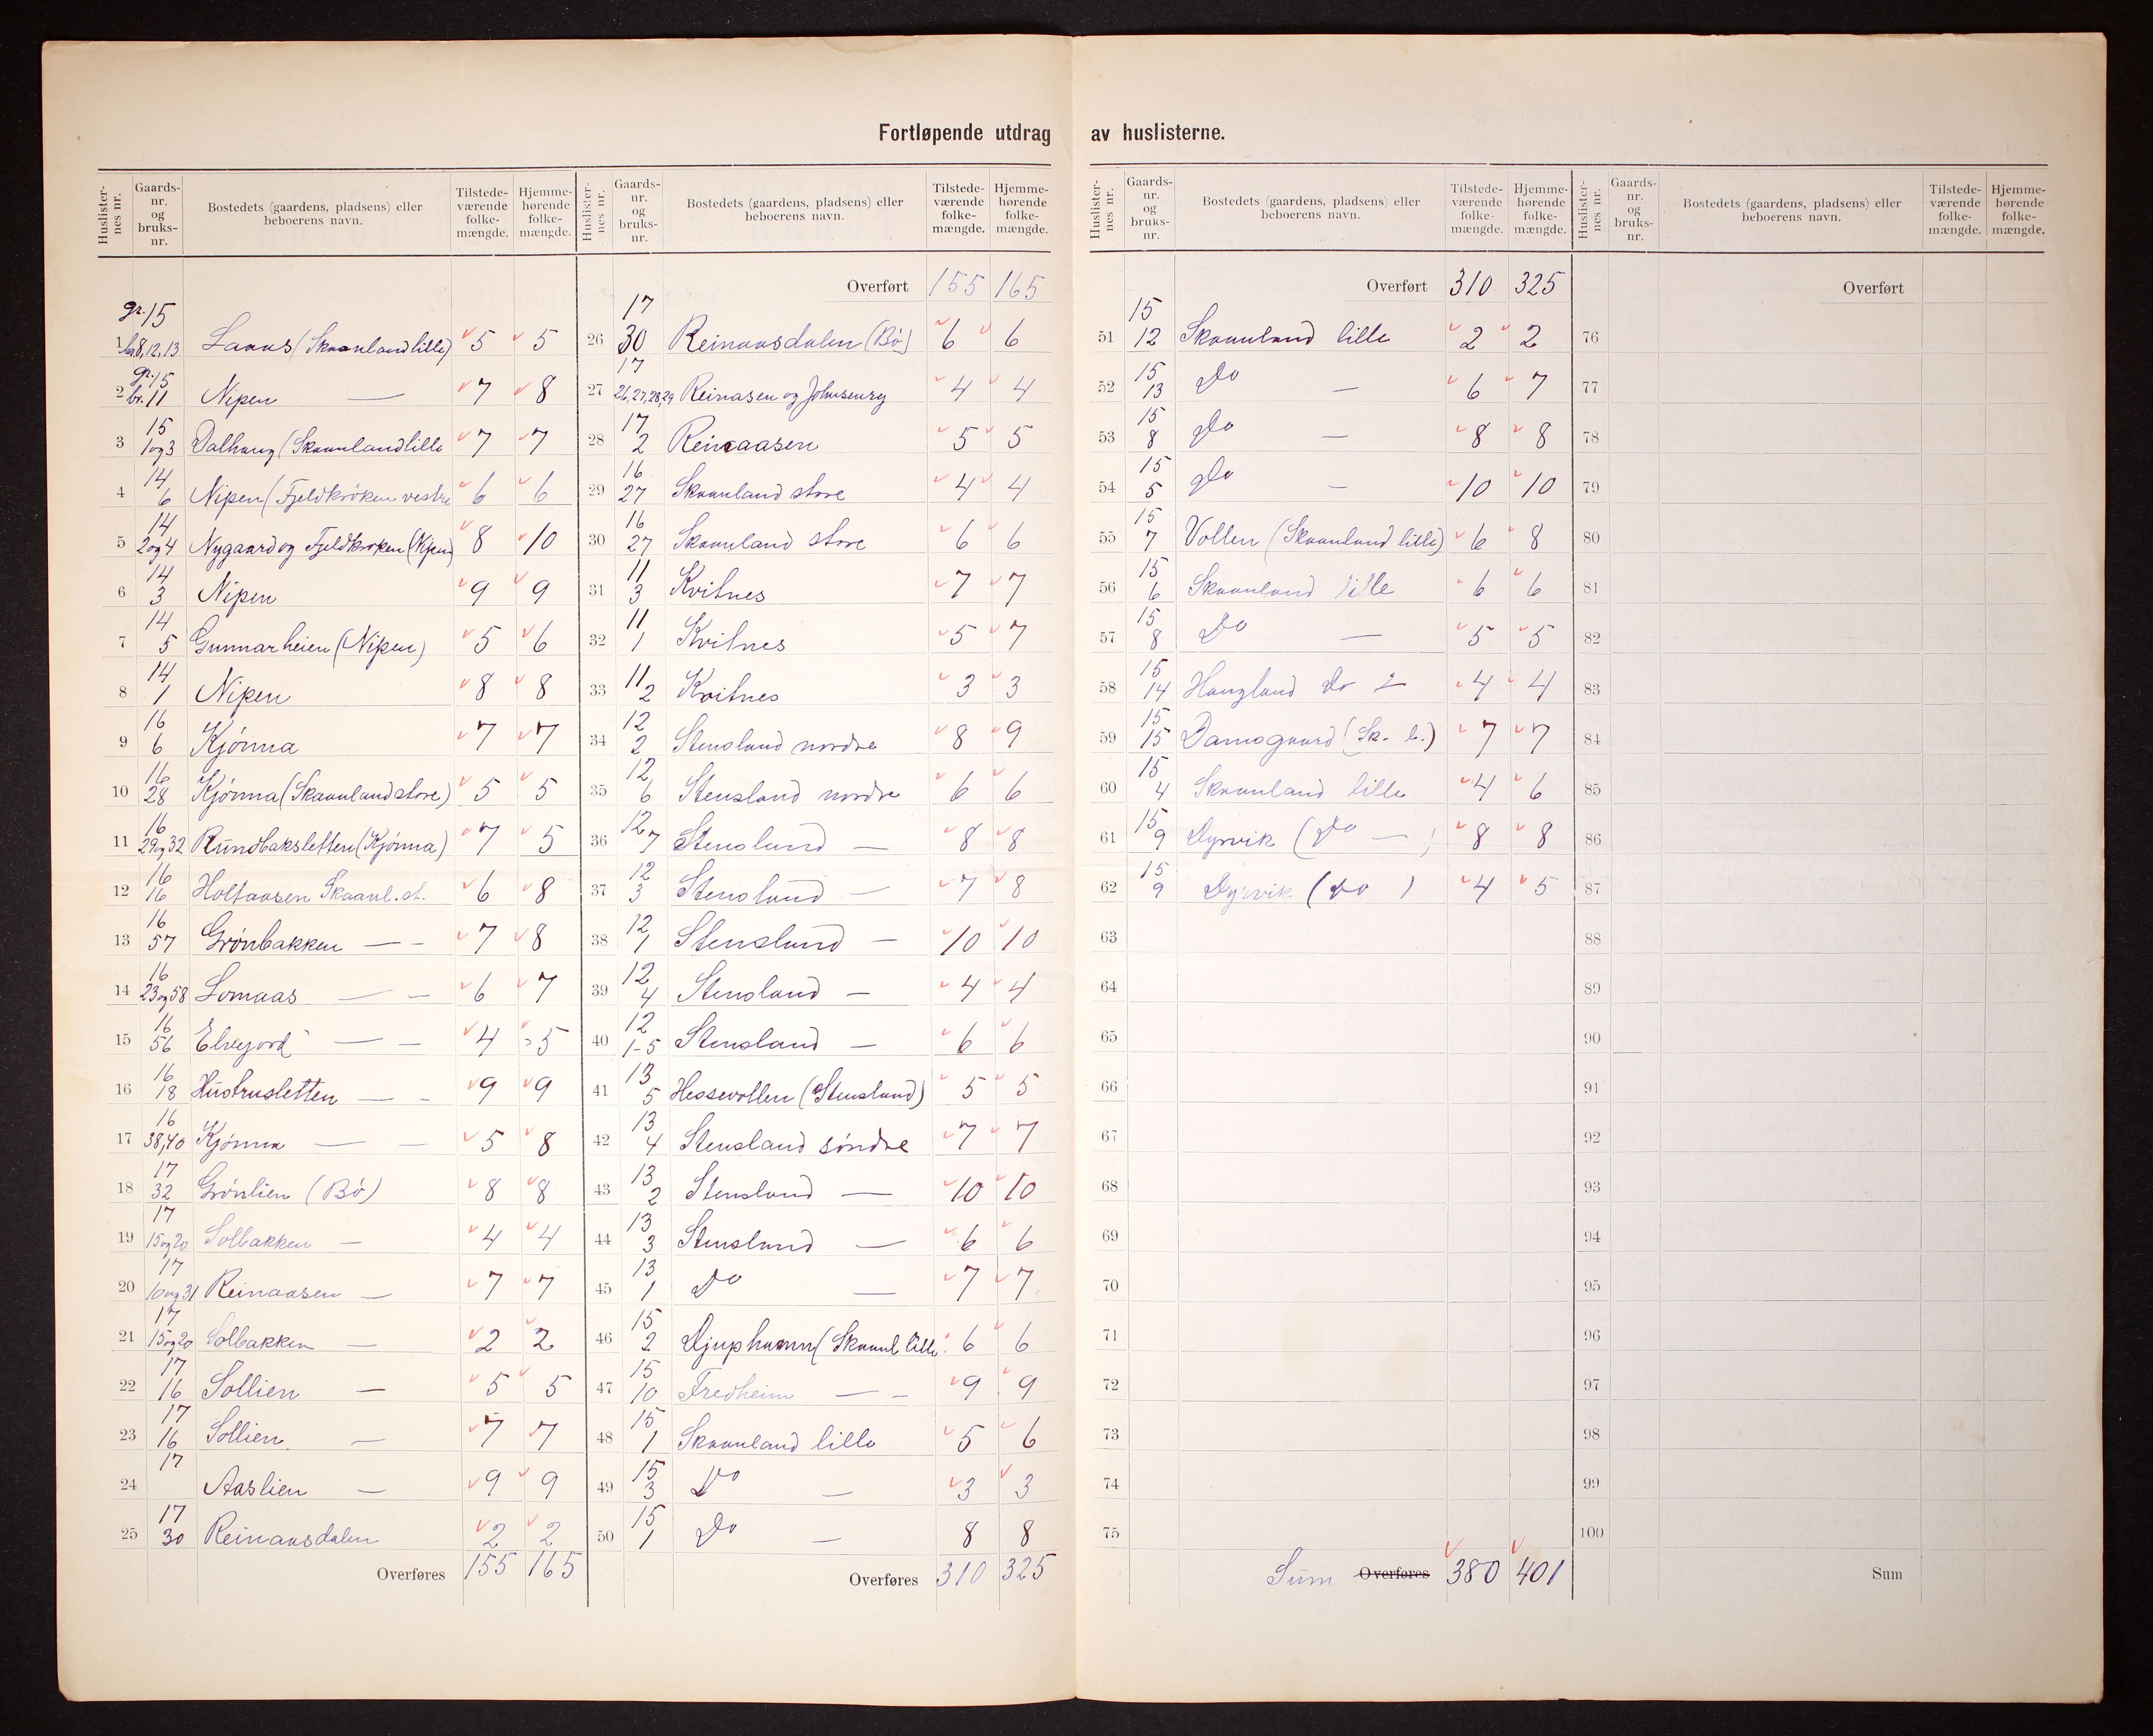 Fortløpende utdrag av huslisterne.
Huslisternes nr. Gaards-nr. og bruks-nr. Bostedets (gaardens, pladsens) eller beboerens navn. Tilstedeværende folkemængde. Hjemmehørende folkemængde.
gr. 15
1 br. 8,12,13 Laaus (Skaanland lille) 5 5
gr. 15
2 br. 11 Nipen — 7 8
15
3 1 og 3 Dalhaug (Skaanland lille 7 7
14
4 6 Nipen (Fjeldkröken vestre 6 6
14
5 2 og 4 Nygaard og Fjeldkroken (Nipen) 8 10
14
6 3 Nipen 9 9
14
7 5 Gunnarheien (Nipen) 5 6
14
8 1 Nipen 8 8
16
9 6 Kjónna 7 7
16
10 28 Kjónna (Skaanland store) 5 5
16
11 29 og 32 Rundbaksletten (Kjónna) 7 5
16
12 16 Holtaasen Skaanl. st. 6 8
16
13 57 Grónbakken — - 7 8
16
14 23 og 58 Lomaas — - 6 7
16
15 56 Elvejord — - 4 5
16
16 18 Hustrusletten — - 9 9
16
17 38,40 Kjónna — - 5 8
17
18 32 Grónlien (Bó) 8 8
17
19 15 og 20 Solbakken — 4 4
17
20 10 og 31 Reinaasen — 7 7
17
21 15 og 20 Solbakken — 2 2
17
22 16 Sollien — 5 5
17
23 16 Sollien — 7 7
17
24 Aaslien — 9 9
17
25 30 Reinaasdalen 2 2
Overføres 155 165
Huslisternes nr. Gaards-nr. og bruks-nr. Bostedets (gaardens, pladsens) eller beboerens navn. Tilstedeværende folkemængde. Hjemmehørende folkemængde.
Overført 155 165
17
26 30 Reinaasdalen (Bó) 6 6
17
27 26,27,28,29 Reinasen og Johnsenryg 4 4
17
28 2 Reinaasen 5 5
16
29 27 Skaanland store 4 4
16
30 27 Skaanland store 6 6
11
31 3 Kvitnes 7 7
11
32 1 Kvitnes 5 7
11
33 2 Kvitnes 3 3
12
34 2 Stensland nordre 8 9
12
35 6 Stensland nordre 6 6
12
36 7 Stensland — 8 8
12
37 3 Stensland — 7 8
12
38 1 Stensland — 10 10
12
39 4 Stensland — 4 4
12
40 1-5 Stensland — 6 6
13
41 5 Hessevollen (Stensland) 5 5
13
42 4 Stensland söndre 7 7
13
43 2 Stensland — 10 10
13
44 3 Stensland — 6 6
13
45 1 Do — 7 7
15
46 2 Djuphamn (Skaanl lille 6 6
15
47 10 Fredheim — - 9 9
15
48 1 Skaanland lille 5 6
15
49 3 Do — 3 3
15
50 1 Do — 8 8
Overføres 310 325
Huslisternes nr. Gaards-nr. og bruks-nr. Bostedets (gaardens, pladsens) eller beboerens navn. Tilstedeværende folkemængde. Hjemmehørende folkemængde.
Overført 310 325
15
51 12 Skaanland lille 2 2
15
52 13 Do — 6 7
15
53 8 Do — 8 8
15
54 5 Do — 10 10
15
55 7 Vollen (Skaanland lille) 6 8
15
56 6 Skaanland lille 6 6
15
57 8 Do — 5 5
15
58 14 Haugland Do - 4 4
15
59 15 Damsgaard (Sk. l.) 7 7
15
60 4 Skaanland lille 4 6
15
61 9 Dyrvik (Do — ) 8 8
15
62 9 Dyrvik (Do ) 4 5
63
64
65
66
67
68
69
70
71
72
73
74
75
Sum Overføres 380 401
Huslisternes nr. Gaards-nr. og bruks-nr. Bostedets (gaardens, pladsens) eller beboerens navn. Tilstedeværende folkemængde. Hjemmehørende folkemængde.
Overført
76
77
78
79
80
81
82
83
84
85
86
87
88
89
90
91
92
93
94
95
96
97
98
99
100
Sum